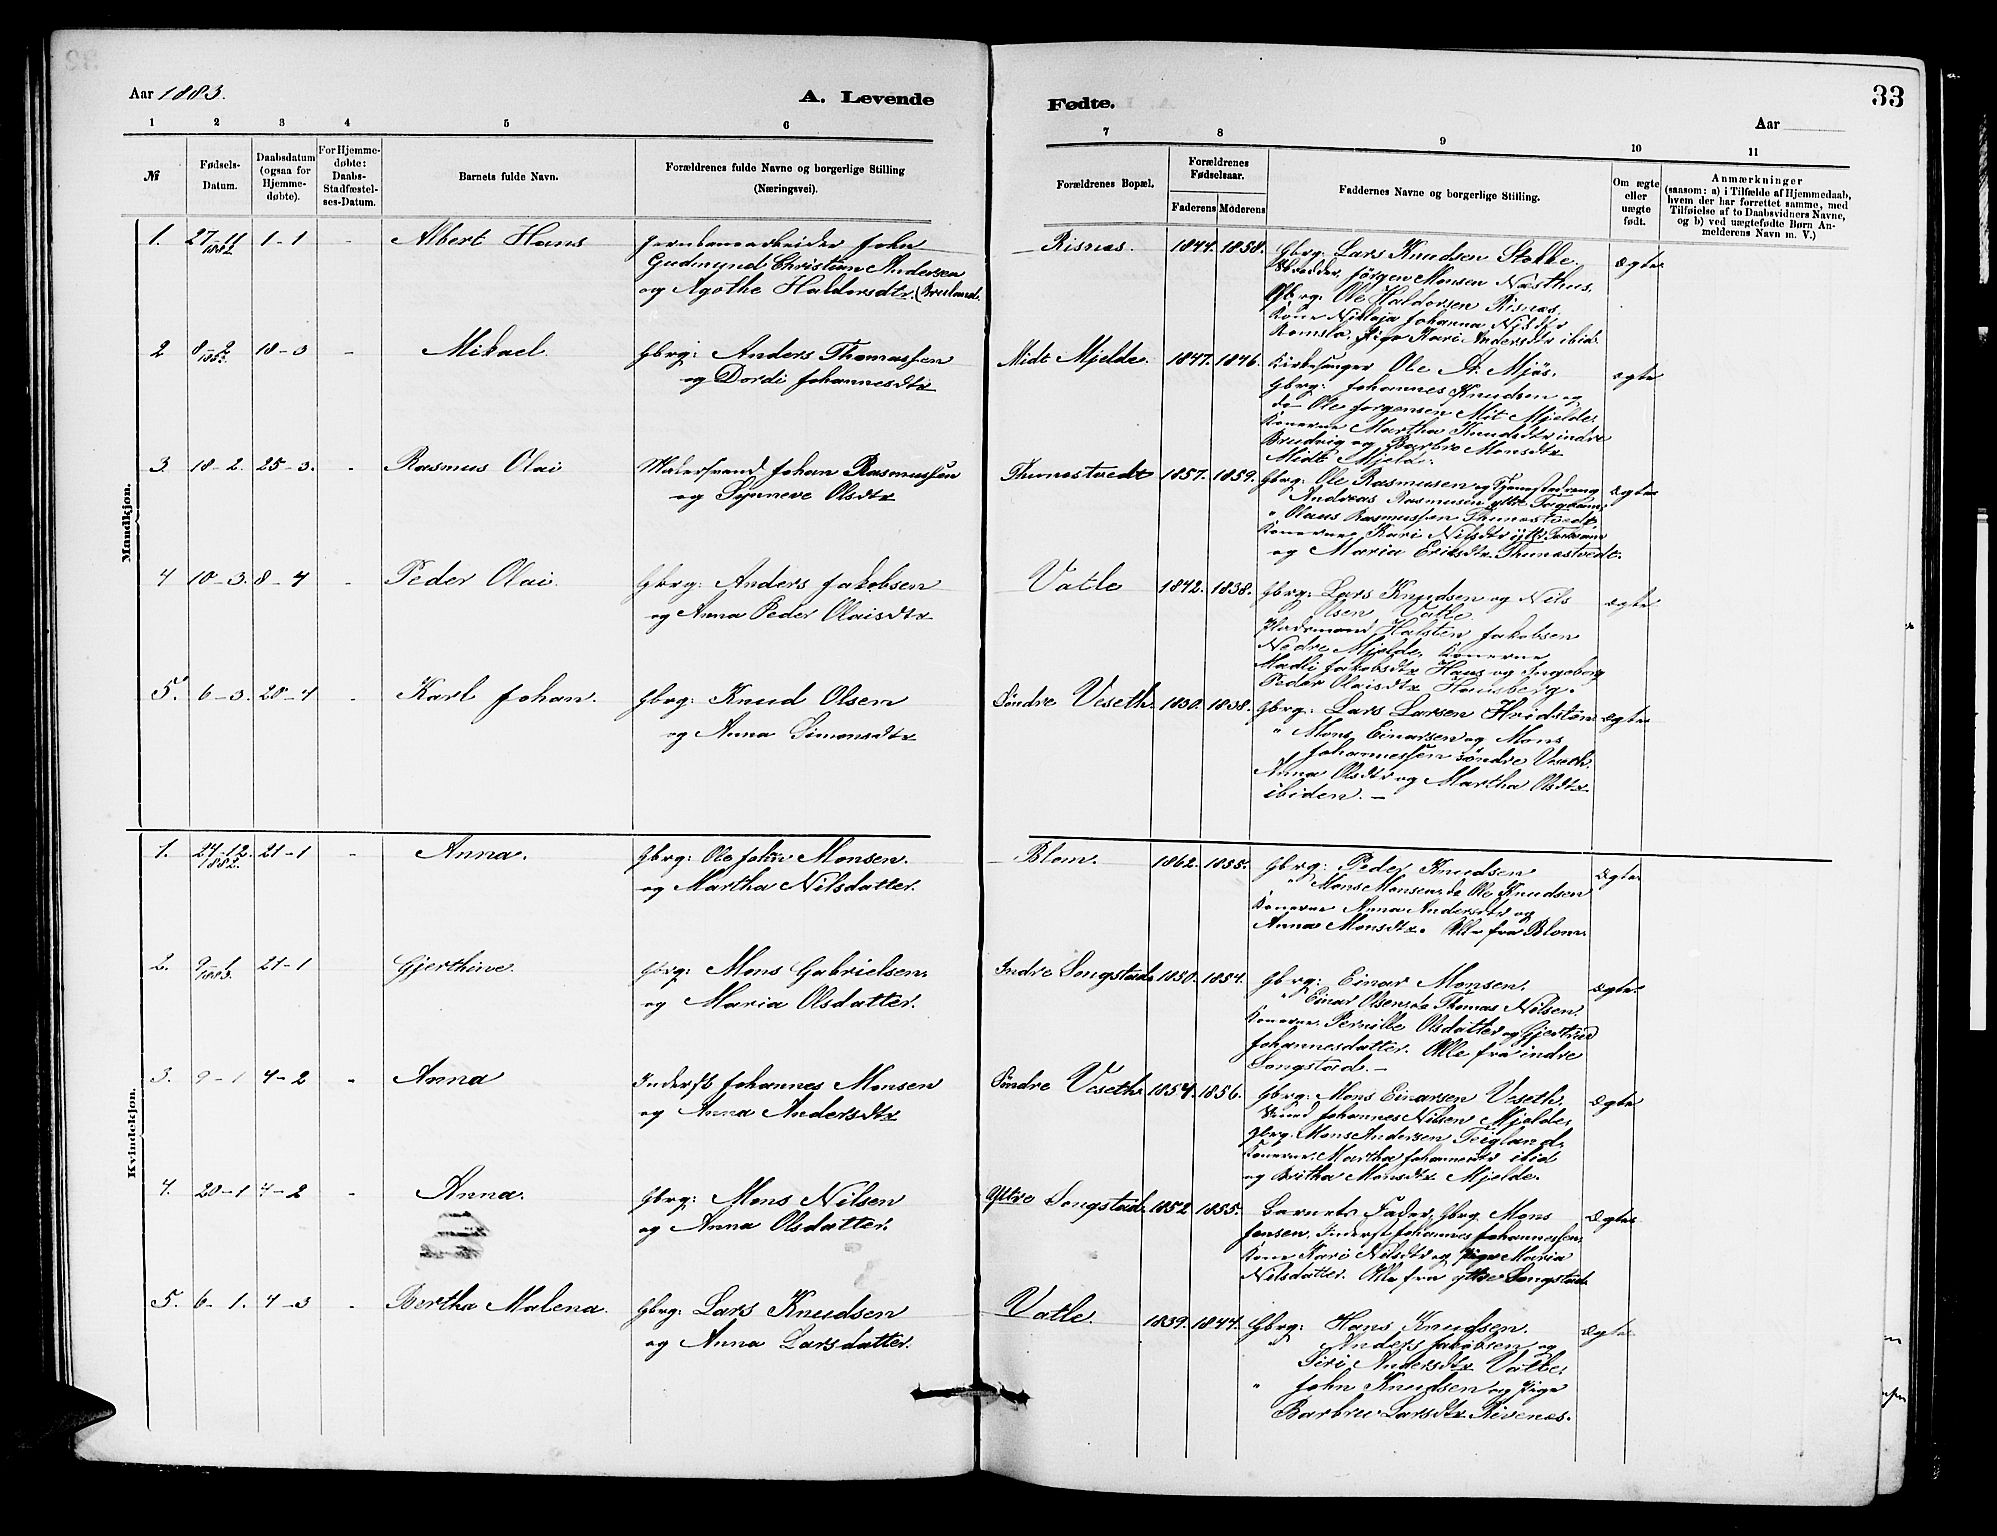 Aar 1883.
A. Levende
Fødte.
33
Aar
1 2 3 4 5 6 7 8 9 10 11
№
Fødsels-
Datum.
Daabsdatum
(ogsaa for
Hjemme-
døbte).
For Hjemme-
døbte:
Daabs-
Stadfæstel-
ses-Datum.
Barnets fulde Navn.
Forældrenes fulde Navne og borgerlige Stilling
(Næringsvei).
Forældrenes Bopæl.
Forældrenes
Fødselsaar.
Faderens Moderens
Faddernes Navne og borgerlige Stilling.
Om ægte
eller
uægte
født.
Anmærkninger
(saasom: a) i Tilfælde af Hjemmedaab,
hvem der har forrettet samme, med
Tilføielse af to Daabsvidners Navne,
og b) ved uægtefødte Børn An-
melderens Navn m. V.)
Mandkjøn.
1. 27-11 1882 1-1 - Albert Hans
Jernbanearbeider John
Gudmund Christian Andersen
og Agothe Haldorsdtr.
Risnæs. 1844. 1858.
Gbrg: Lars Knudsen Stokke.
Skredder Jørgen Monsen Næsthus.
Gbrg: Ole Haldorsen Risnæs.
Kone Nikolaja Johanna Nilsdtr
Romslo, Pige Kari Andersdtr ibid.
ægte
2 8-2 18-3 - Mikael.
Gbrg: Anders Thomassen
og Dordi Johannesdtr
Midt Mjelde. 1847. 1846.
Kirkesanger Ole A. Mjøs.
Gbrg: Johannes Knudsen og
do Ole Jørgensen Mit Mjelde.
Konerne Martha Knudsdtr indre
Bruvig og Barbro Monsdtr
Midt Mjelde.
ægte
3. 18-2. 25-3. - Rasmus Olai
Johan Rasmussen
og Synneve Olsdtr
Thunestvedt 1857. 1859.
Gbrg: Ole Rasmusen og Tjenestedreng
Andreas Rasmusen ytre
" Olaus Rasmussen Thunestvedt,
Konerne Kari Nilsdtr ytre
og Maria Eriksdtr Thunestvedt.
ægte
4 10-3. 8-4 - Peder Olai.
Gbrg: Anders Jakobsen
og Anna Peder Olaisdtr
Vatle 1842. 1838.
Gbrg: Lars Knudsen og Nils
Olsen Vatle
Pladsmand Halsten Jakobsen
Nedre Mjelde. Konerne
Madli Jakobsdtr Haus og Ingeborg
Peder Olaisdtr Hausberg.
ægte
5. 6-3. 20-4 - Karl Johan.
Gbrg: Knud Olsen
og Anna Simonsdtr
Søndre Veseth. 1830. 1838.
Gbrg: Lars Larsen
" Mons Einarsen og Mons
Johannessen søndre Veseth.
Anna Olsdtr og Martha Olsdtr
ibiden. -
ægte
Kvindekjøn.
1. 24-12. 1882. 21-1 - Anna.
Gbrg: Ole John Monsen.
og Martha Nilsdatter.
Blom. 1862. 1855.
Gbrg: Peder Knudsen
" Mons Monsen, do Ole Knudsen
Konerne Anna Andersdtr og
Anna Monsdtr. Alle fra Blom.
ægte
2. 9-1 1883. 21-1 Gjerthine.
Gbrg: Mons Gabrielsen.
og Maria Olsdatter.
Indre Songstad. 1850. 1854.
Gbrg: Einar Monsen.
" Einar Olsen, do Thomas Nilsen.
Konerne. Pernille Olsdatter og Gjertrud
Johannesdatter. Alle fra indre
Songstad. -
ægte.
3. 9-1 4-2 - Anna
Inderst Johannes Monsen
og Anna Andersdtr
Søndre Veseth. 1854. 1856.
Gbrg: Mons Einarsen Veseth.
Johannes Nilsen Mjelde,
Gbrg. Mons Andersen Teigland.
Konerne. Martha Johannesdtr ibid
og Britha Monsdtr Mjelde.
ægte
4. 20-1 4-2 - Anna.
Gbrg: Mons Nilsen
og Anna Olsdatter.
Ytre Songstad. 1852 1855.
Barnets Fader, Gbrg Mons
Jensen, Inderst Johannes Johannessen.
Kone Kari Nilsdtr og Pige Maria
Nilsdatter. Alle fra ytre Songstad.
ægte
5. 6-1. 4-3 - Bertha Malena.
Gbrg: Lars Knudsen
og Anna Larsdatter.
Vatle. 1839. 1844.
Gbrg: Hans Knudsen.
" Anders Jakobsen og
Siri Andersdtr Vatle,
" John Knudsen og Pige
Barbru Larsdtr Rivenæs.
ægte